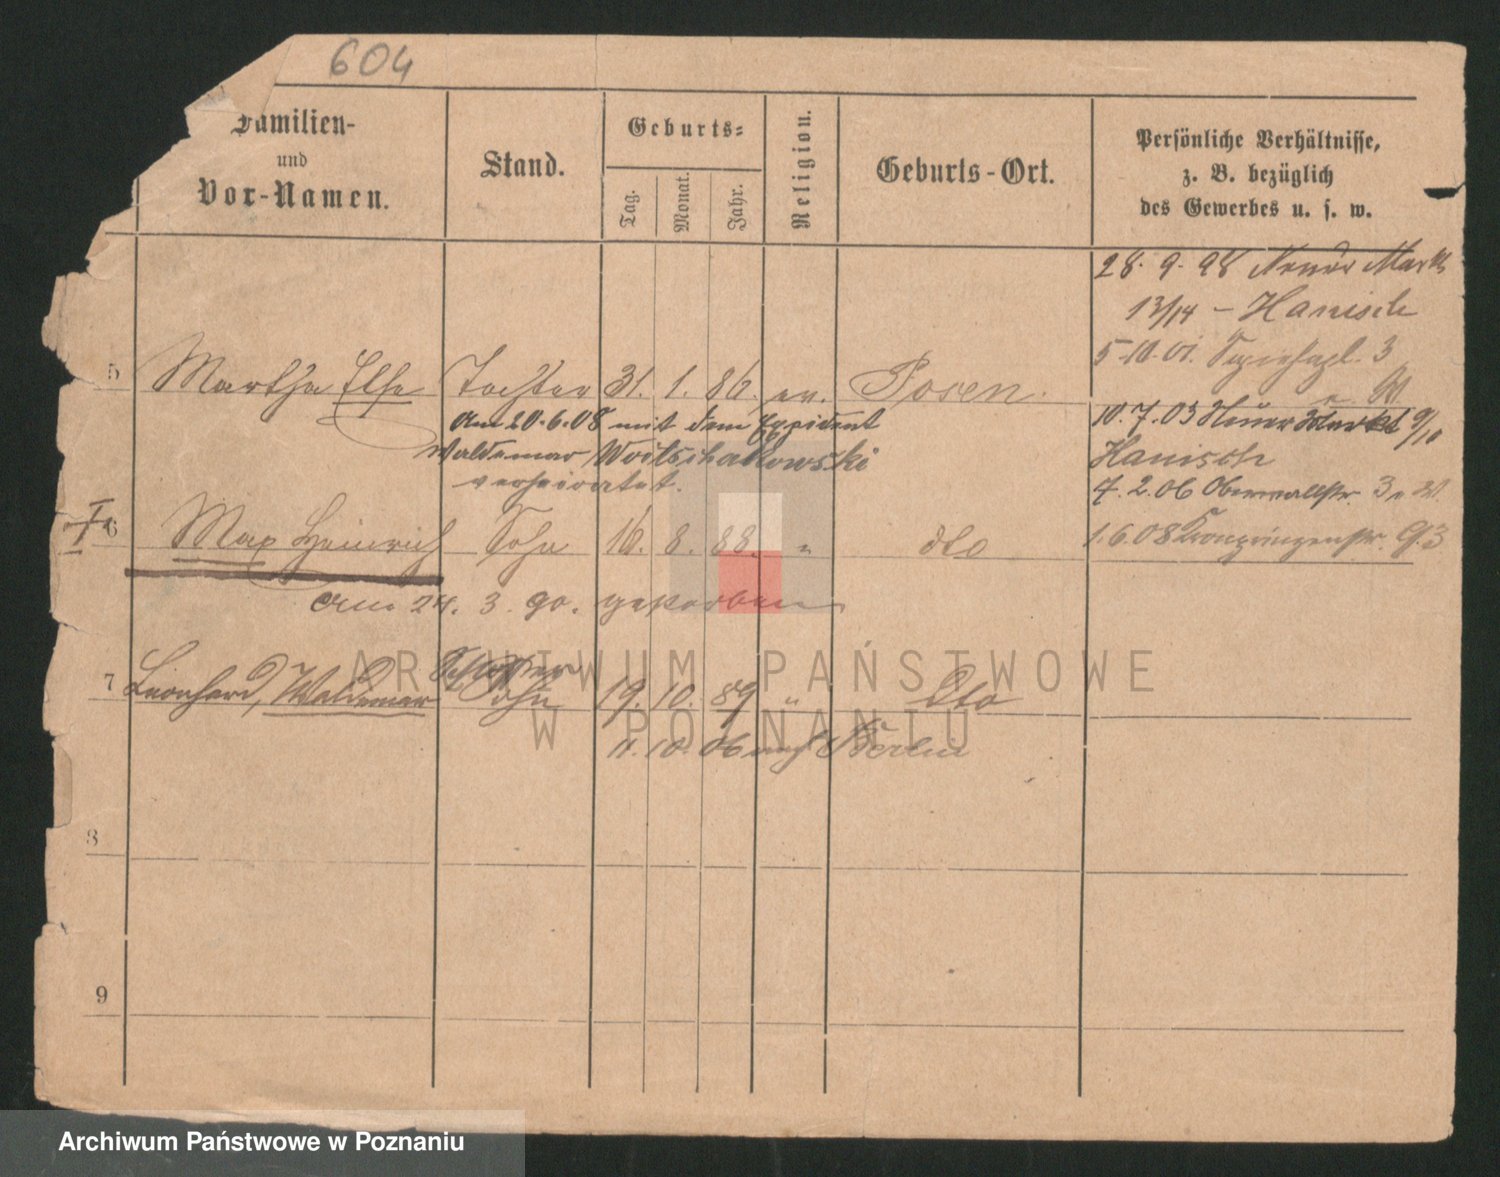 604
Familien-
und
Vor-Namen.
Stand.
Geburts-
Tag.
Monat.
Jahr.
Religion.
Geburts-Ort.
Persönliche Verhältnisse,
z. B. bezüglich
des Gewerbes u. s. w.
28. 9. 98 Neuer Markt
13/14 - Hanisch
5 Martha Else Tochter 31. 1. 86. ev. Posen.
5-10.01. 3
Am 20.6.08 mit dem Expedient
Waldemar Woitschakowski
verheiratet.
10.7.03 Neuer Markt 9/10
Hanisch
7. 2. 06 Oberwallstr. 3
6 Max Heinrich Sohn 16. 8. 88. " dto
1.6.08 Kronprinzenstr. 93
Am 24. 3. 90. gestorben
7 Leonhard, Waldemar Schlosser Sohn 19. 10. 89 " Dto
11. 10. 06 nach Berlin
8
9
ARCHIWUM PAŃSTWOWE
W POZNANIU
Archiwum Państwowe w Poznaniu